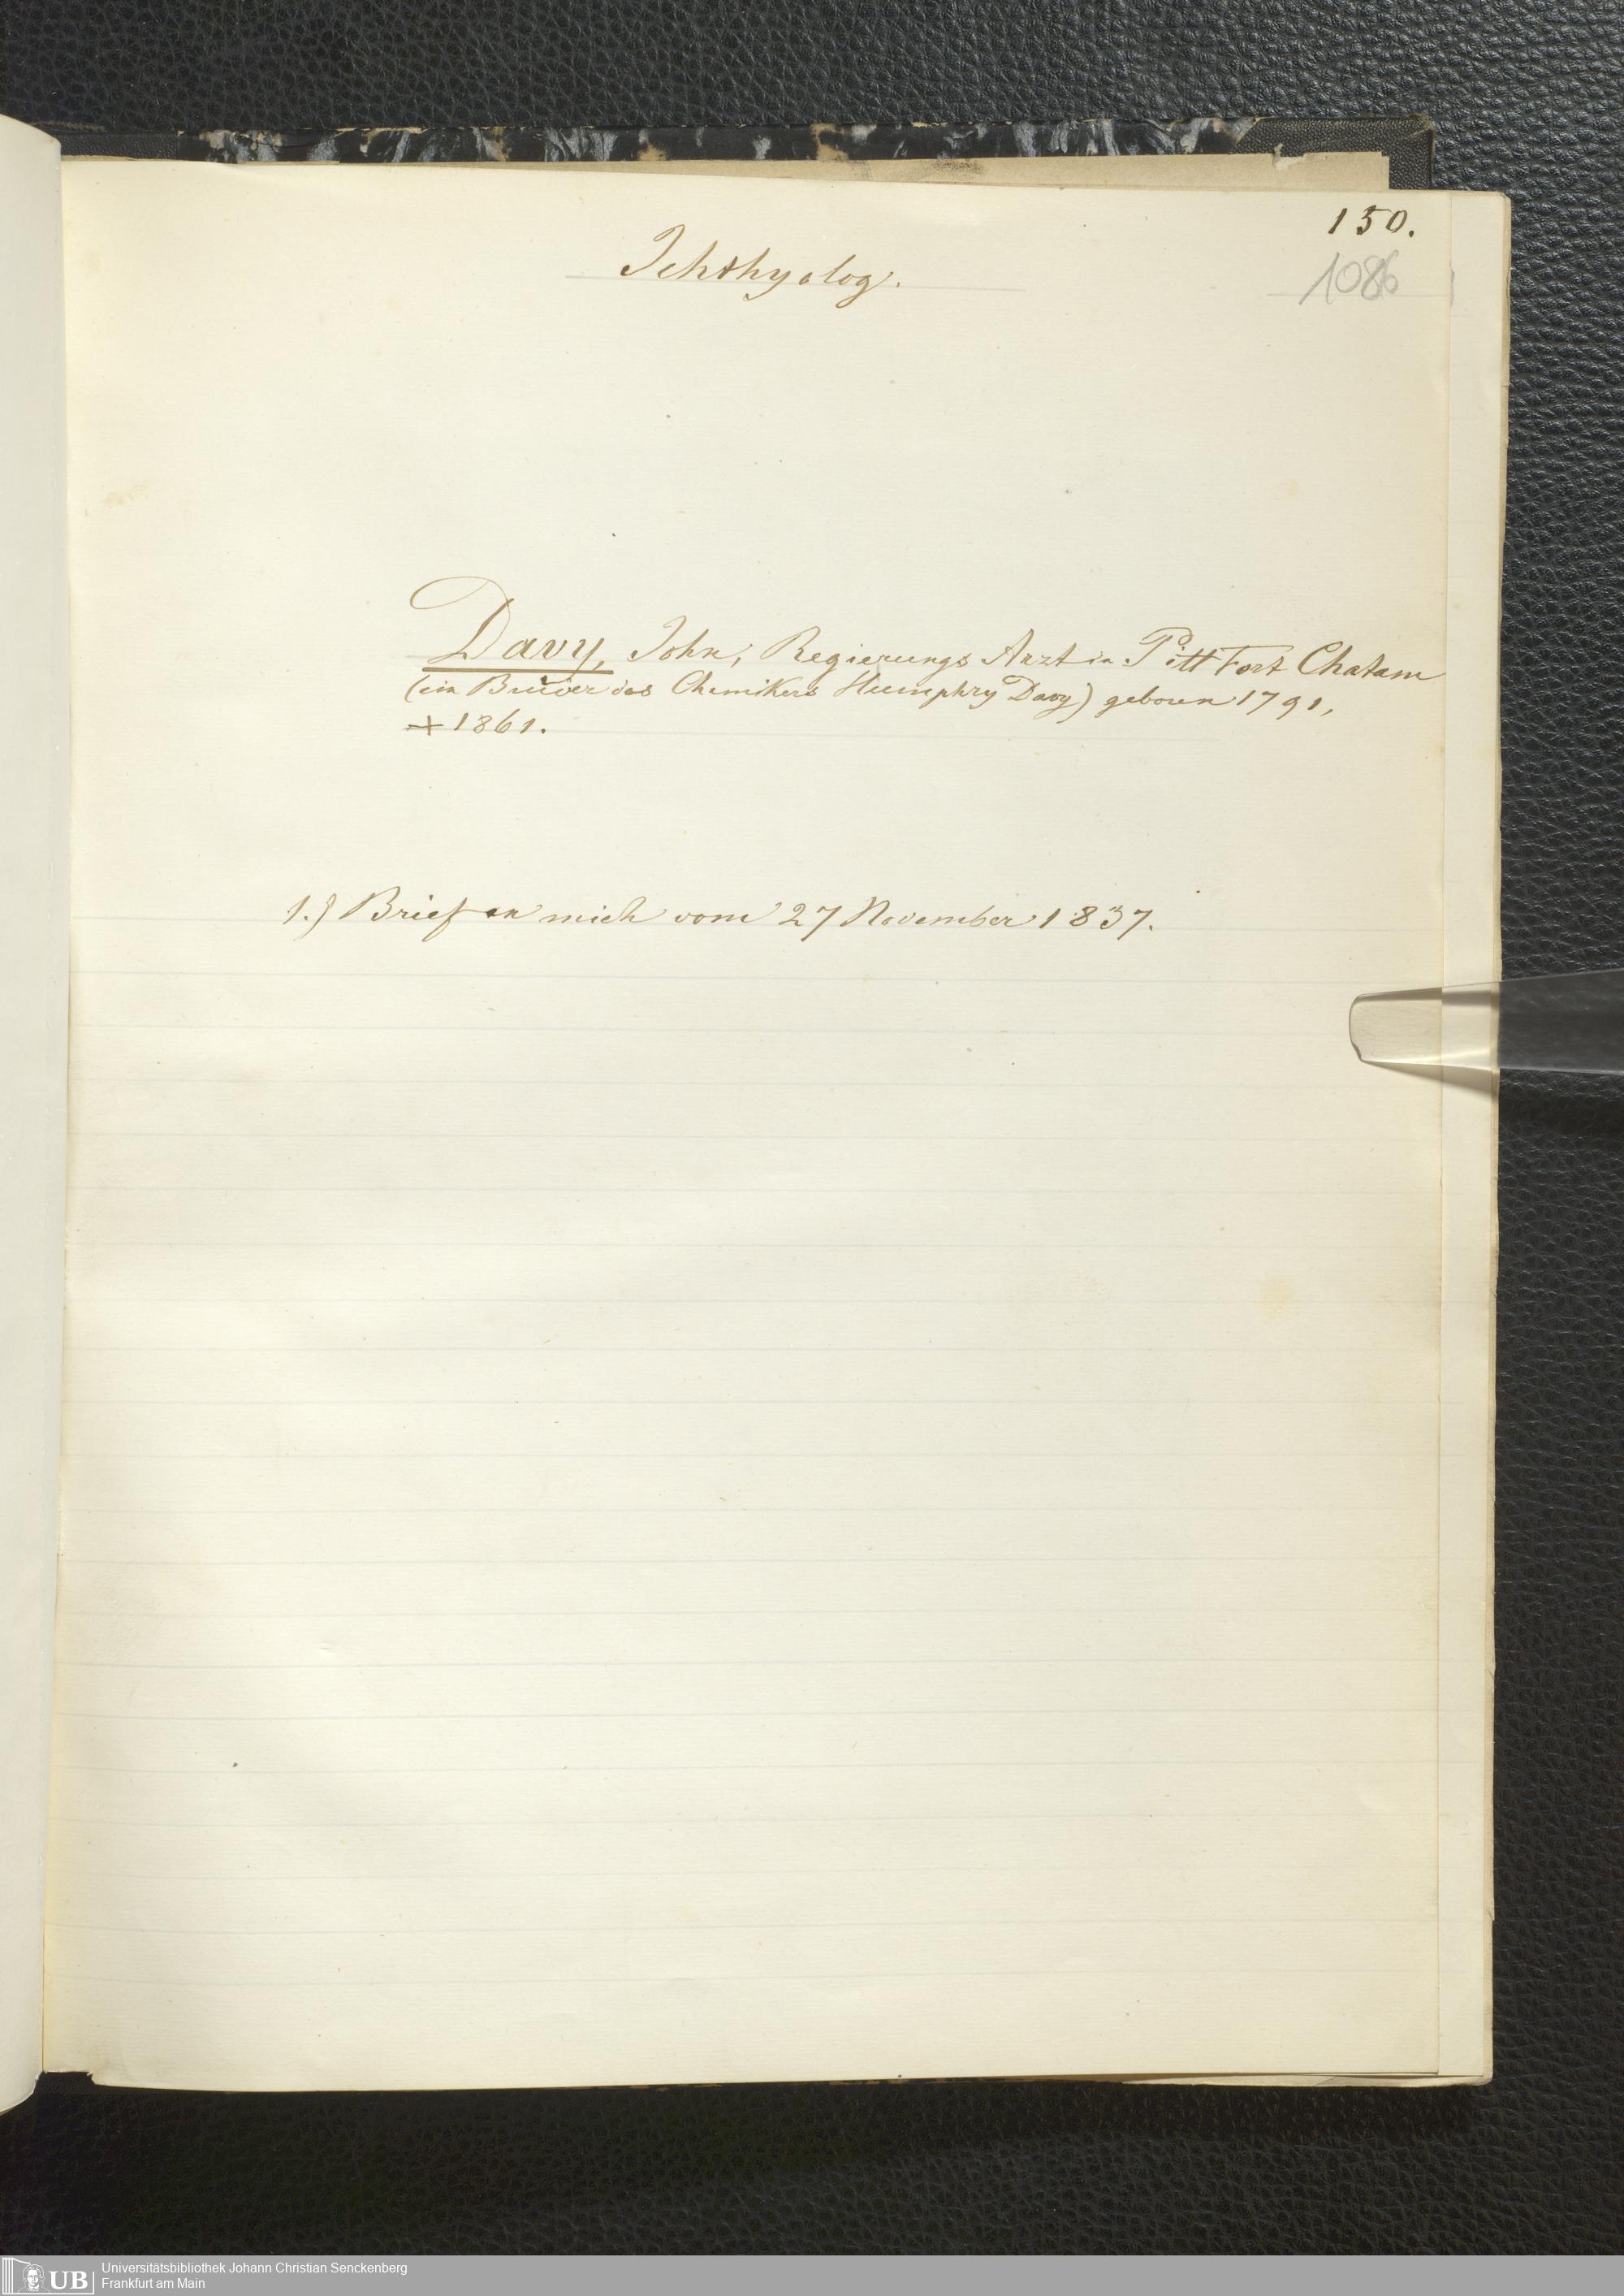 150.
1086
Ichthyolog.
Davy, John, Regierungs Arzt in Pitt Fort Chatam
(ein Bruder des Chemikers Humphry Davy) geboren 1791,
+ 1861.
1.) Brief an mich vom 27 November 1837.
UB Universitätsbibliothek Johann Christian Senckenberg
Frankfurt am Main